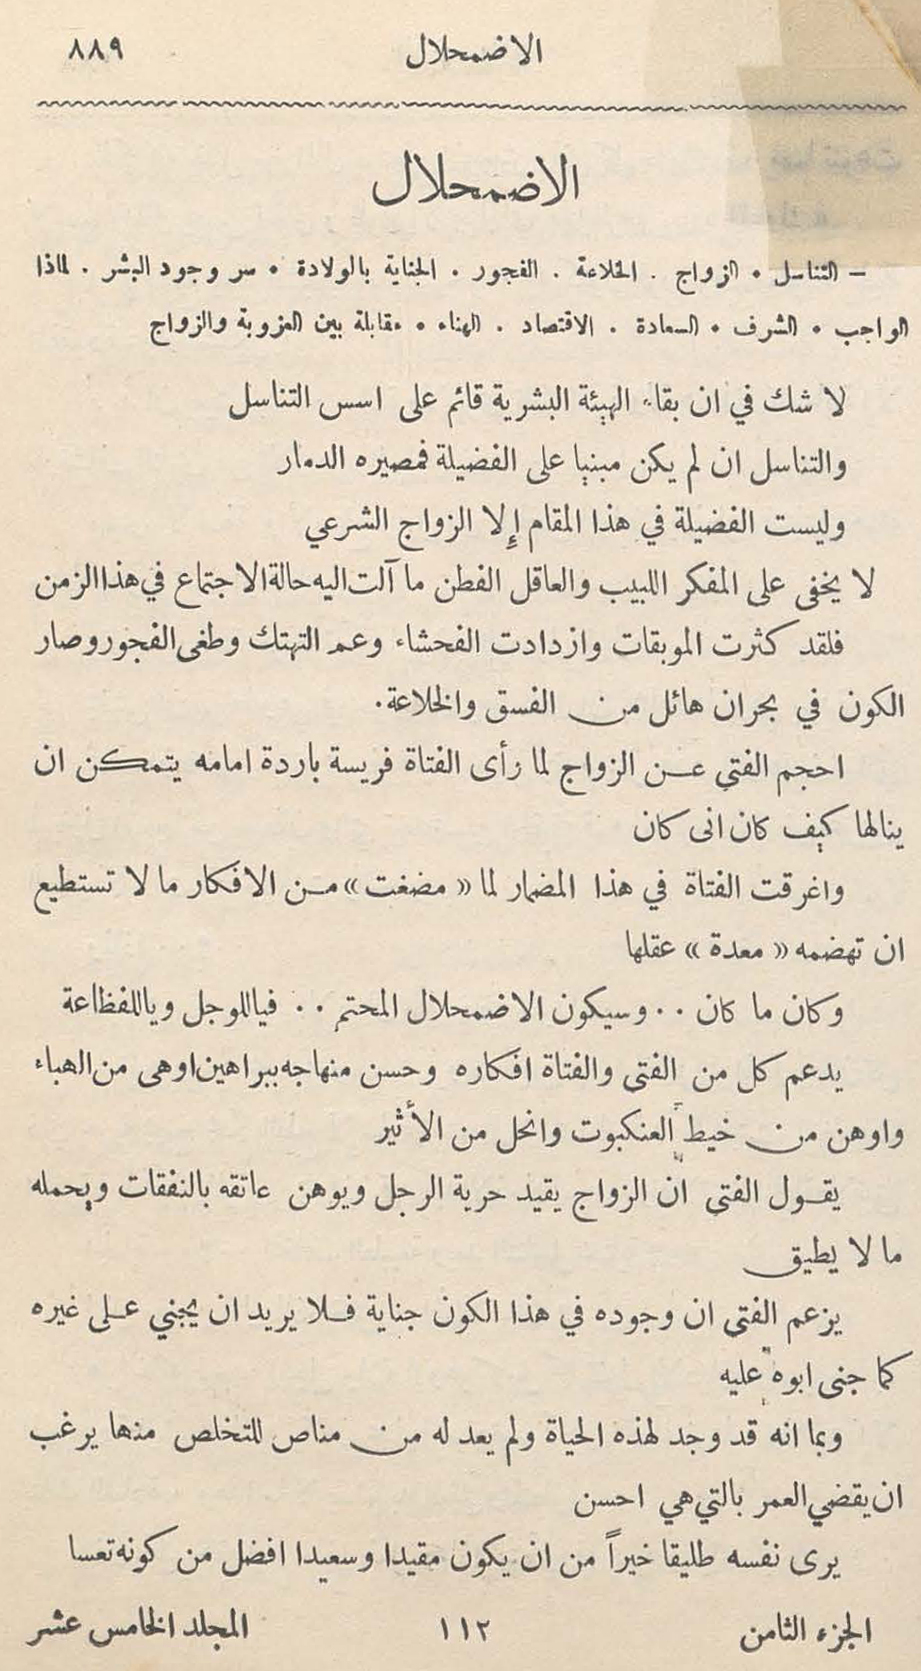 الاضمحلال ٨٨٩
الاضمحلال
— التناسل . الزواج . الخلاعة . الفجور . الجناية بالولادة . سر وجود البشر . لماذا
الواجب . الشرف . السعادة . الاقتصاد . الهناء . مقابلة بين العزوبة والزواج
لا شك في ان بقاء الهيئة البشرية قائم على اسس التناسل
والتناسل ان لم يكن مبنيا على الفضيلة فمصيره الدمار
وليست الفضيلة في هذا المقام إلا الزواج الشرعي
لا يخفى على المفكر اللبيب والعاقل الفطن ما آلت اليه حالة الاجتماع في هذا الزمن
فلقد كثرت الموبقات وازدادت الفحشاء وعم التهتك وطغى الفجور وصار
الكون في بحران هائل من الفسق والخلاعة.
احجم الفتى عن الزواج لما رأى الفتاة فريسة باردة امامه يتمكن ان
ينالها كيف كان انى كان
واغرقت الفتاة في هذا المضمار لما « مضغت » من الافكار ما لا تستطيع
ان تهضمه « معدة » عقلها
وكان ما كان .. وسيكون الاضمحلال المحتم .. فياللوجل وياللفظاعة
يدعم كل من الفتى والفتاة افكاره وحسن منهاجه ببراهين اوهى من الهباء
واوهن من خيط العنكبوت وانحل من الأثير
يقول الفتى ان الزواج يقيد حرية الرجل ويوهن عاتقه بالنفقات ويحمله
ما لا يطيق
يزعم الفتى ان وجوده في هذا الكون جناية فلا يريد ان يجني على غيره
كما جنى ابوه عليه
وبما انه قد وجد لهذه الحياة ولم يعد له من مناص للتخلص منها يرغب
ان يقضي العمر بالتي هي احسن
يرى نفسه طليقا خيراً من ان يكون مقيدا وسعيدا افضل من كونه تعسا
الجزء الثامن ١١٢ المجلد الخامس عشر